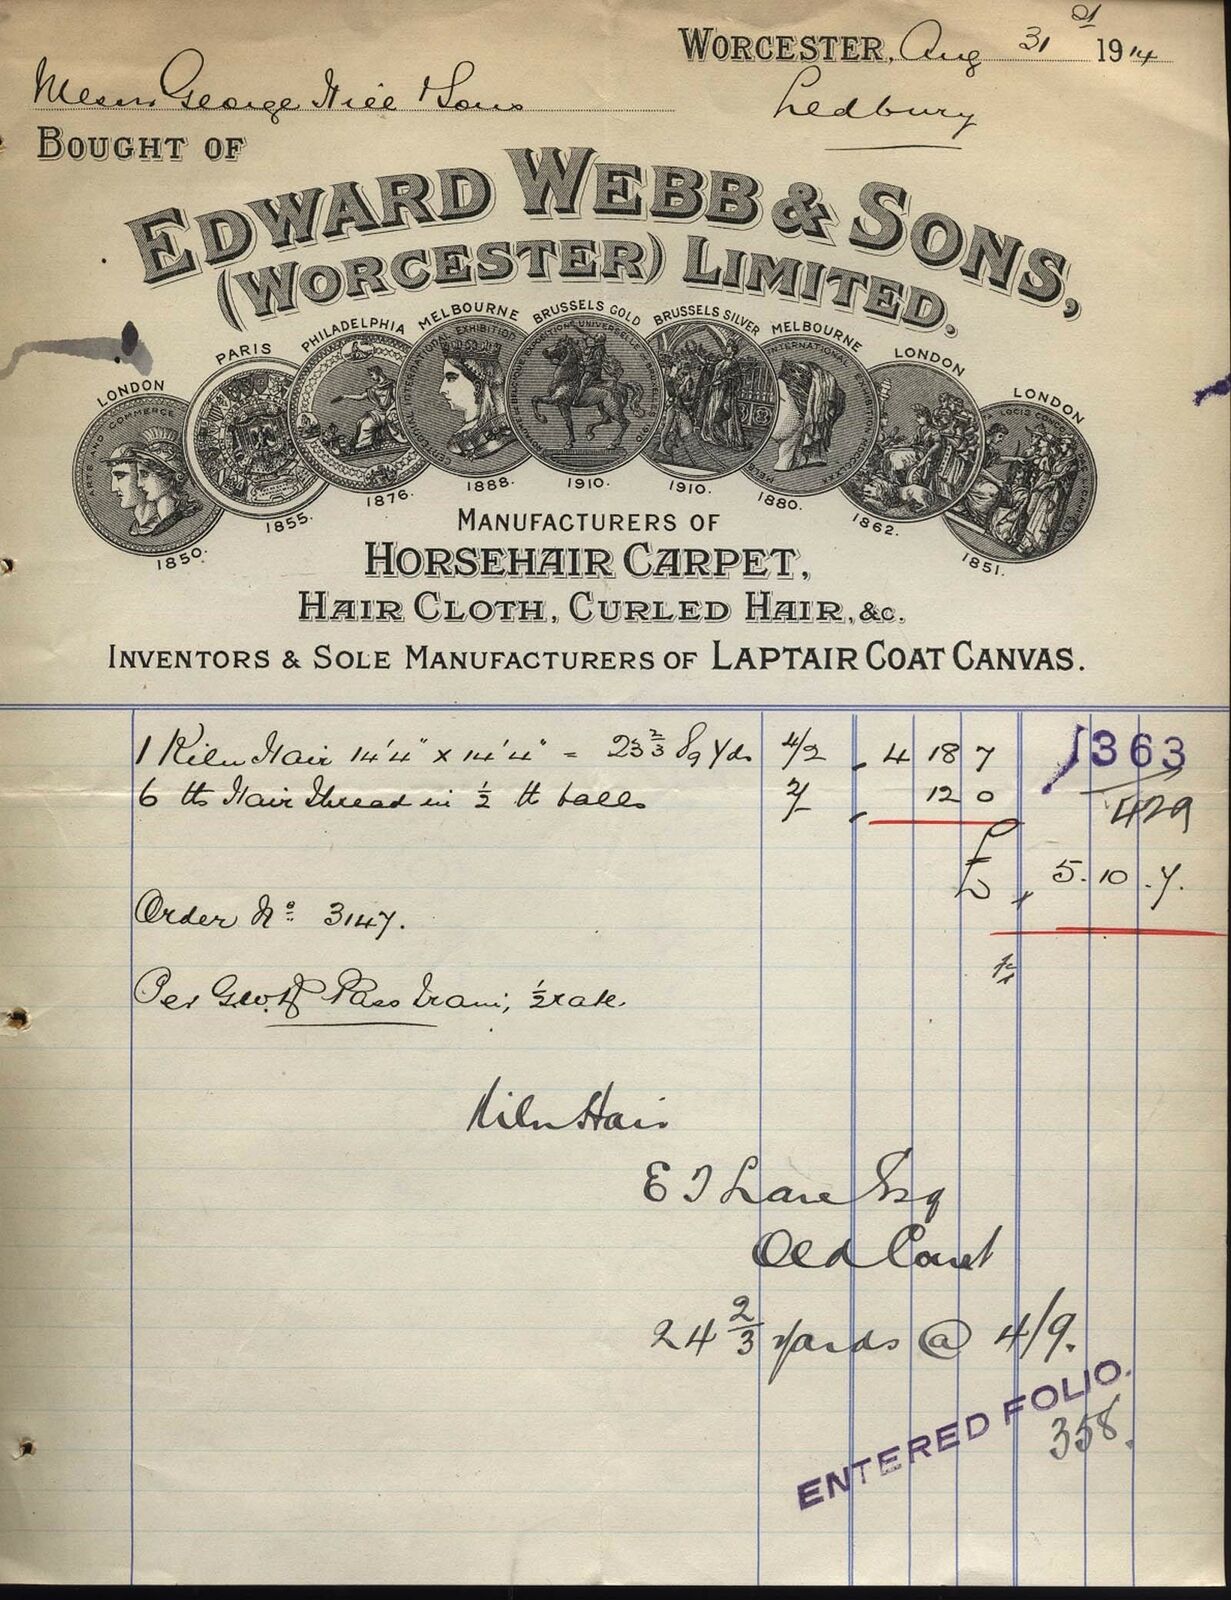 WORCESTER, Aug 31st 1914
Messrs George Hill & Sons
Ledbury
BOUGHT OF
EDWARD WEBB & SONS,
(WORCESTER) LIMITED.
LONDON PARIS PHILADELPHIA MELBOURNE BRUSSELS GOLD BRUSSELS SILVER MELBOURNE LONDON LONDON
ARTS AND COMMERCE
1850. 1855. 1876. 1888. 1910. 1910. 1880. 1862. 1851.
MANUFACTURERS OF
HORSEHAIR CARPET,
HAIR CLOTH, CURLED HAIR, &C.
INVENTORS & SOLE MANUFACTURERS OF LAPTAIR COAT CANVAS.
1 Kiln Hair 14'4" x 14'4" = 23 2/3 Sq Yds 4/2 4 18 7 1363
6 lbs Hair Thread in 1/2 lb balls 2/- 12 0 429
£ 5. 10. 7.
Order No 3147.
Per GW Pass Train, 1/2 rate.
Kiln Hair
E T Lane Esq
Old Court
24 2/3 yards @ 4/9.
ENTERED FOLIO.
358.